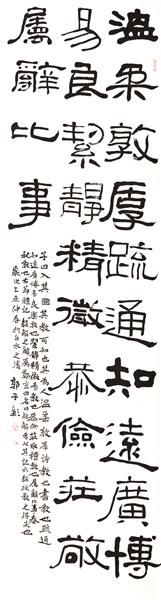 溫柔敦厚疏通知遠廣博
易良絜靜精微恭儉莊敬
屬辭比事
子曰入其國其教可知也其為人溫柔敦厚詩教也疏通
知遠書教也廣博易良樂教也絜靜精微易教也恭儉莊敬禮教也屬辭比事春
秋教也
歲次乙亥仲春於白水之濱 郭子